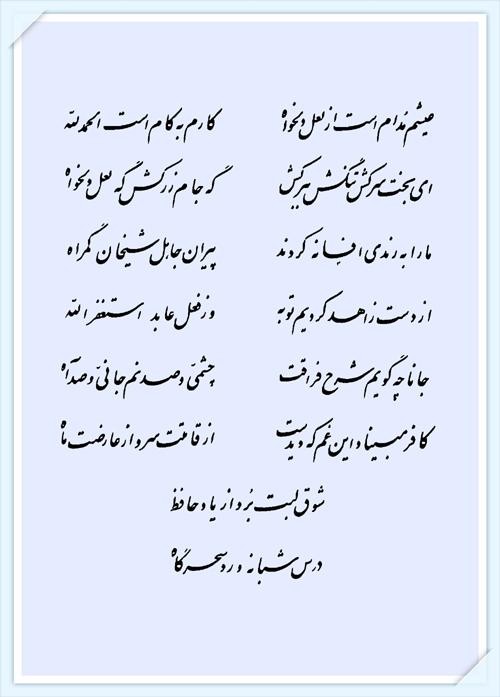 عیشم مدام است از لعل دلخواه
کارم به کام است الحمدلله
ای بخت سرکش تنگش به بر کش
گه جام زر کش گه لعل دلخواه
ما را به رندی افسانه کردند
پیران جاهل شیخان گمراه
از دست زاهد کردیم توبه
و از فعل عابد استغفرالله
جانا چه گویم شرح فراقت
چشمی و صد نم جانی و صد آه
کافر مبیناد این غم که دیدست
از قامتت سرو از عارضت ماه
شوق لبت برد از یاد حافظ
درس شبانه ورد سحرگاه